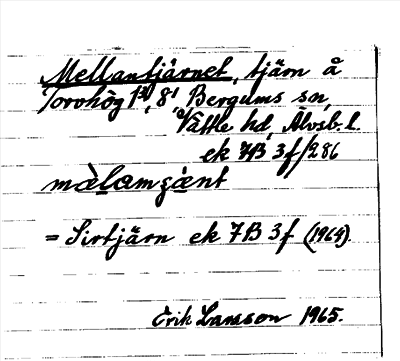 Mellantjärnet, tjärn å
Torvhög 1³, 8¹, Bergums sn,
Vättle hd, Älvsb. l.
ek 7B 3f/286
= Sirtjärn ek 7B 3f (1964).
Erik Larsson 1965.